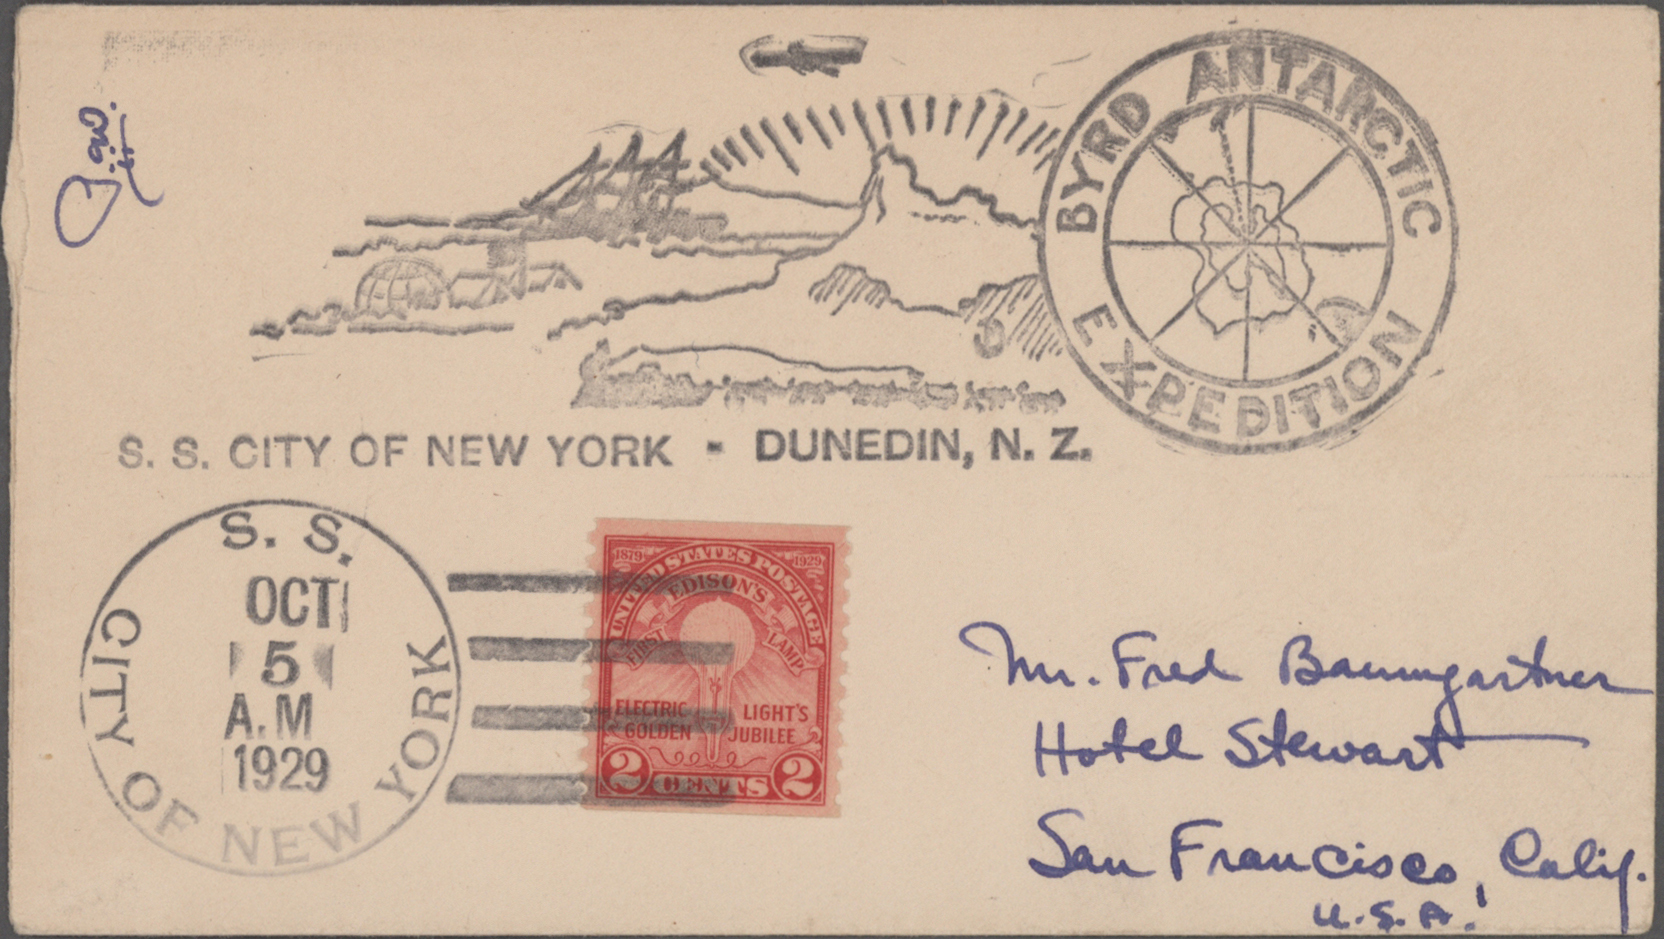 BYRD ANTARCTIC
EXPEDITION
S. S. CITY OF NEW YORK - DUNEDIN, N. Z.
S. S.
CITY OF NEW YORK
OCT
5
A.M
1929
1879 1929
UNITED STATES POSTAGE
EDISON'S
FIRST LAMP
ELECTRIC LIGHT'S
GOLDEN JUBILEE
2 CENTS 2
Mr. Fred Baumgartner
Hotel Stewart
San Francisco, Calif.
U.S.A.